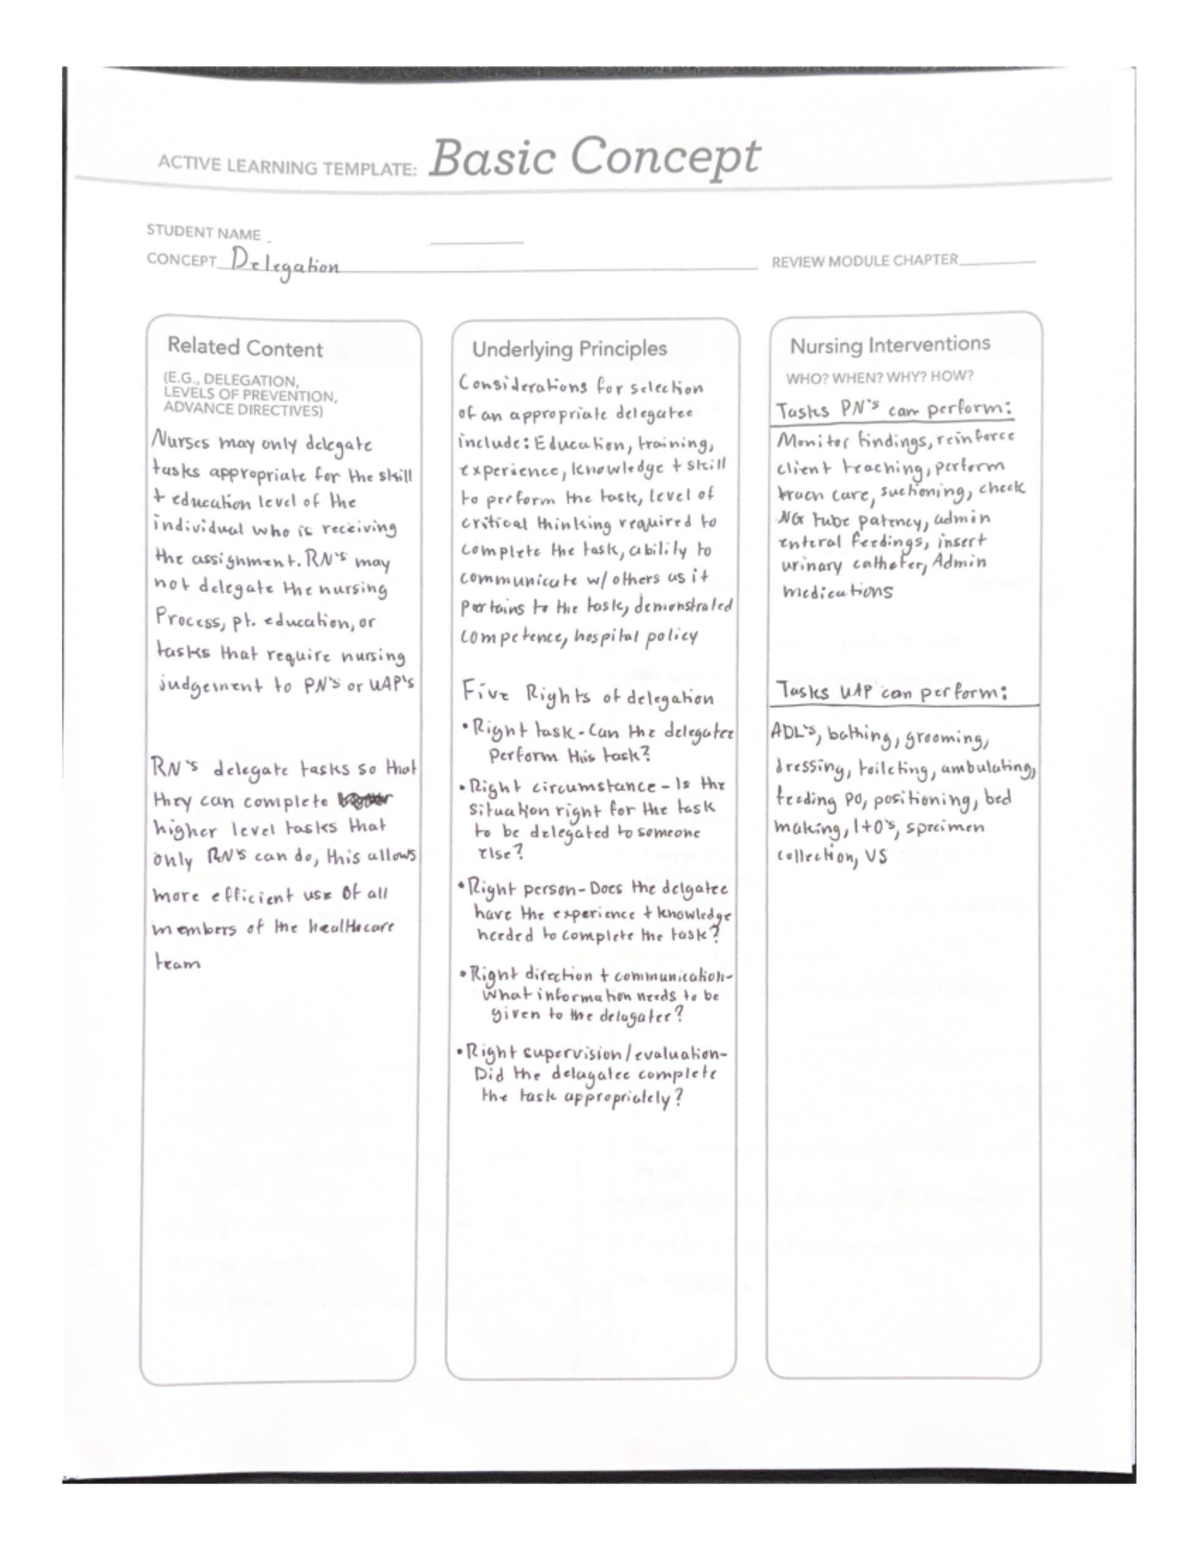 ACTIVE LEARNING TEMPLATE: Basic Concept
STUDENT NAME
CONCEPT Delegation
REVIEW MODULE CHAPTER
Related Content
(E.G., DELEGATION,
LEVELS OF PREVENTION,
ADVANCE DIRECTIVES)
Nurses may only delegate
tasks appropriate for the skill
+ education level of the
individual who is receiving
the assignment. RN's may
not delegate the nursing
Process, pt. education, or
tasks that require nursing
judgement to PN's or UAP's
RN's delegate tasks so that
they can complete
higher level tasks that
only RN's can do, this allows
more efficient use of all
members of the healthcare
team
Underlying Principles
Considerations for selection
of an appropriate delegatee
include: Education, training,
experience, knowledge + skill
to perform the task, level of
critical thinking required to
complete the task, ability to
communicate w/ others as it
pertains to the task, demonstrated
competence, hospital policy
Five Rights of delegation
• Right task - Can the delegatee
perform this task?
• Right circumstance - Is the
situation right for the task
to be delegated to someone
else?
• Right person - Does the delgatee
have the experience + knowledge
needed to complete the task?
• Right direction + communication-
What information needs to be
given to the delagatee?
• Right supervision/evaluation-
Did the delagatee complete
the task appropriately?
Nursing Interventions
WHO? WHEN? WHY? HOW?
Tasks PN's can perform:
Monitor findings, reinforce
client teaching, perform
trach care, suctioning, check
NG tube patency, admin
enteral feedings, insert
urinary catheter, Admin
medications
Tasks UAP can perform:
ADL's, bathing, grooming,
dressing, toileting, ambulating,
feeding PO, positioning, bed
making, I+O's, specimen
collection, VS